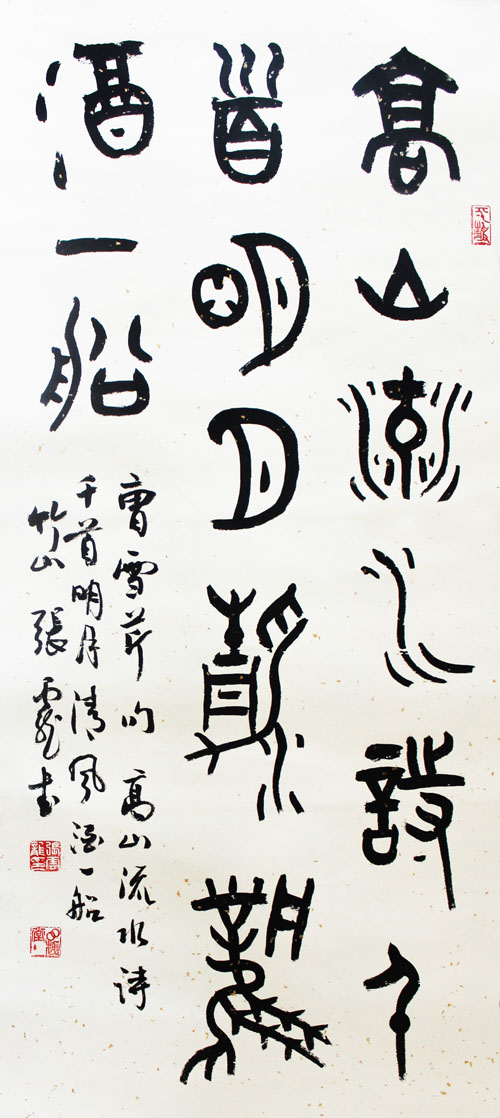 高山流水詩千
首明月清風
酒一船
曹雪芹句 高山流水詩
千首明月清風酒一船
竹山張雲龍書